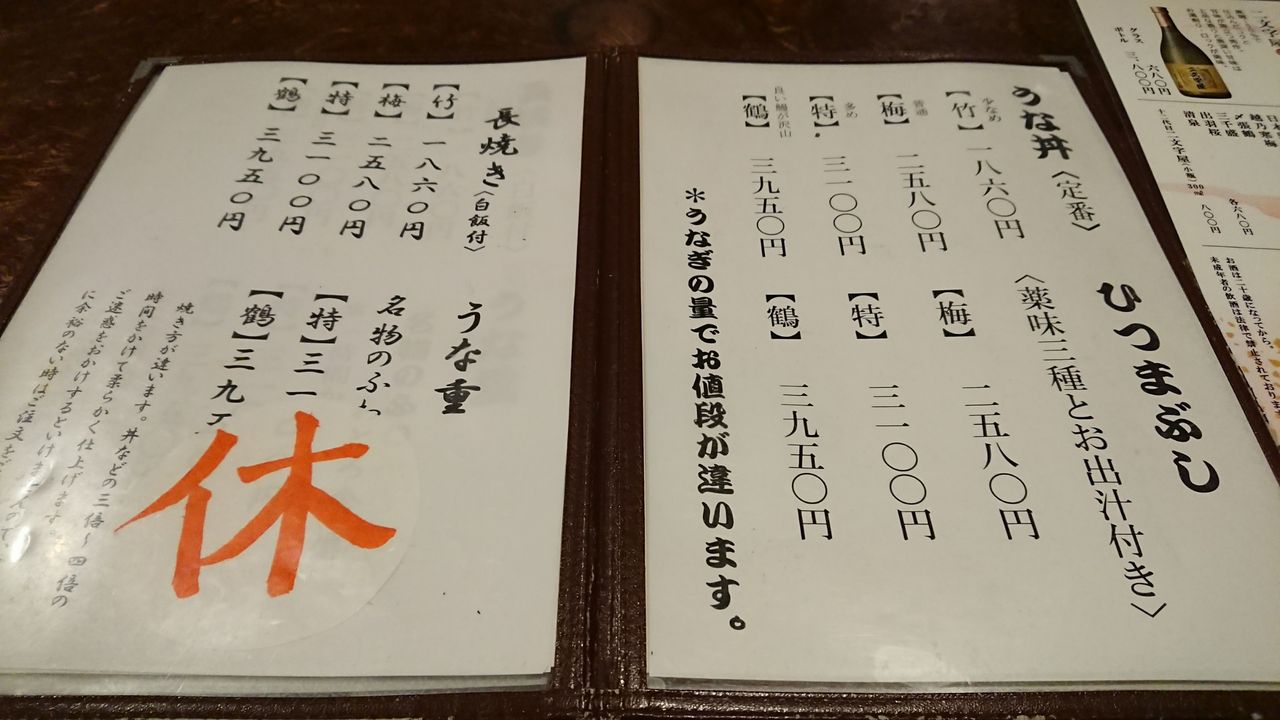 うな丼〈定番〉
少なめ
【竹】一八六〇円
普通
【梅】二五八〇円
多め
【特】三一〇〇円
良い鰻が沢山
【鶴】三九五〇円
ひつまぶし
〈薬味三種とお出汁付き〉
【梅】二五八〇円
【特】三一〇〇円
【鶴】三九五〇円
＊うなぎの量でお値段が違います。
長焼き〈白飯付〉
【竹】一八六〇円
【梅】二五八〇円
【特】三一〇〇円
【鶴】三九五〇円
うな重
名物のふ
【特】三一
【鶴】三九
休
焼き方が違います。丼などの三倍〜四倍の
時間をかけて柔らかく仕上げます。
ご迷惑をおかけするといけませんので、
に余裕のない時はご注文を
グラス 六八〇円
ボトル 三、八〇〇円
越乃寒梅
〆張鶴
三千盛
出羽桜
清泉
各六八〇円
十二代目二文字屋(小瓶)300㎖ 八〇〇円
お酒は二十歳になってから。
未成年者の飲酒は法律で禁止されております